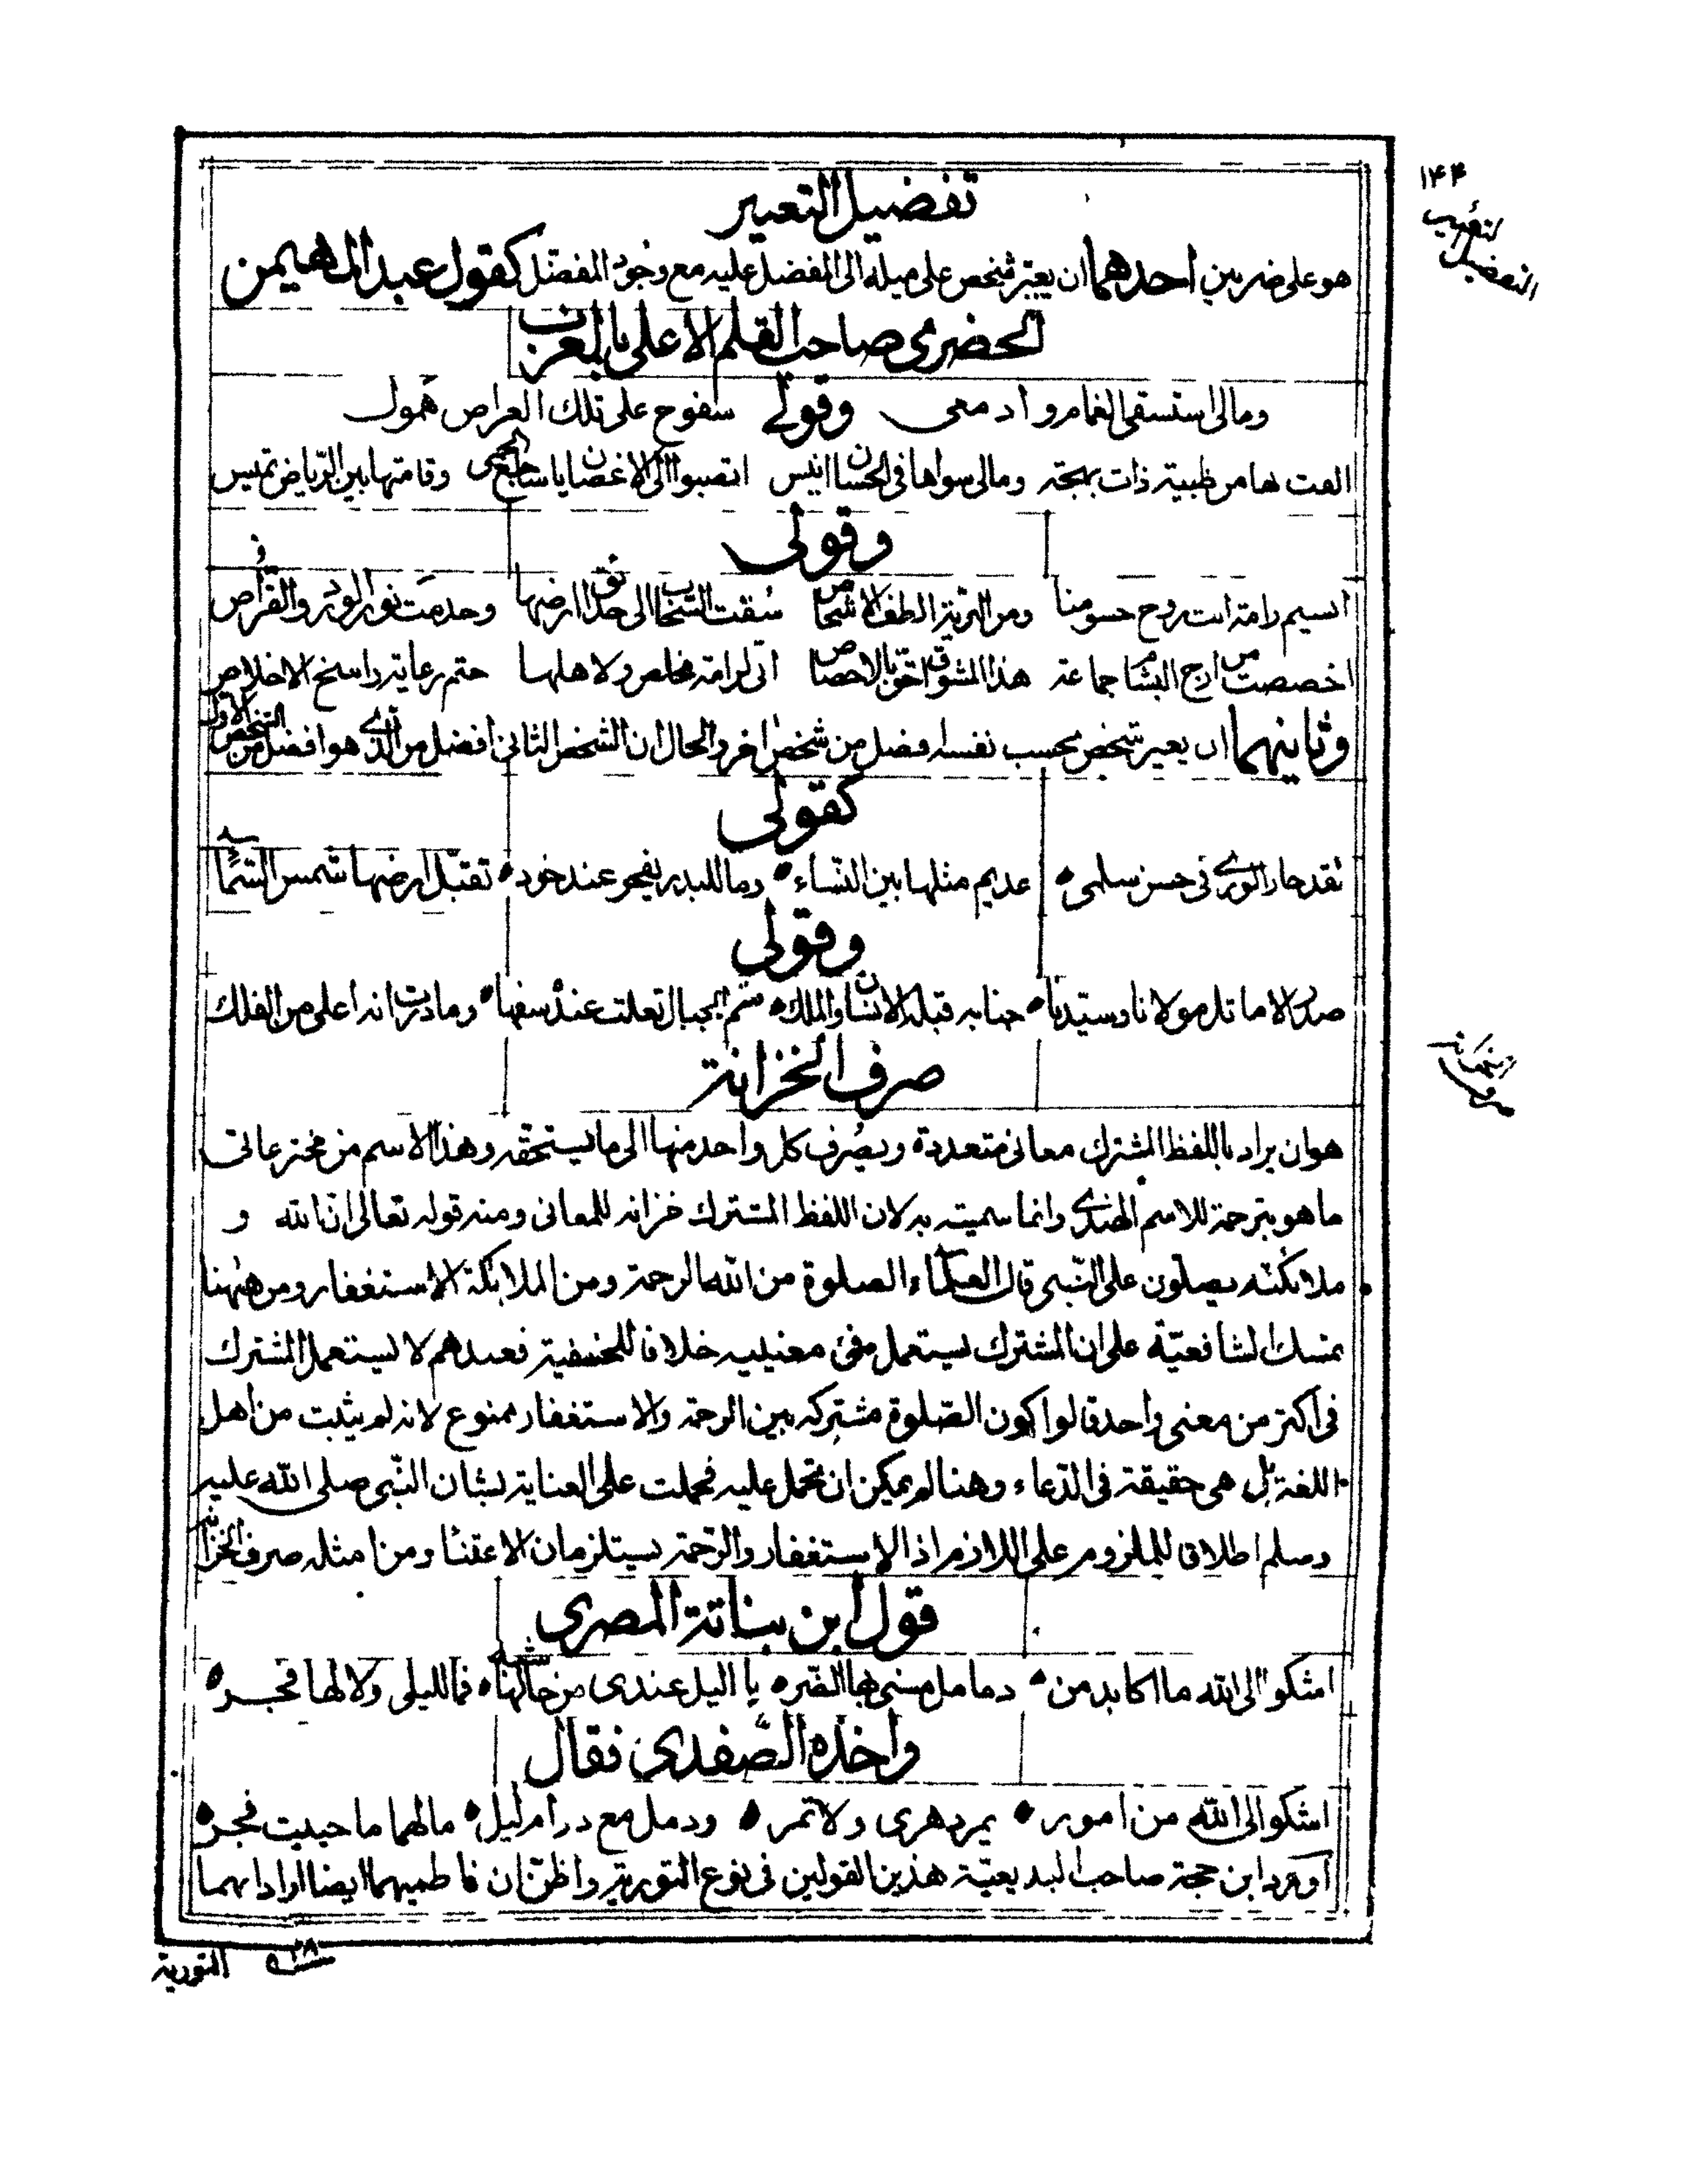 ١٤٤
التفضيل
تفضيل التعيير
هو على ضربين احدهما ان يعير شخص على ميله الى المفضل عليه مع وجود المفضل كقول عبد المهيمن
الحضرمي صاحب القلم الاعلى بالمغرب
ومالي استسقي الغمام وادمعي وقولي سفوح على تلك العراص همول
الفت لها من ظبية ذات بهجة ومالي سواها في الحسان انيس اتصبوا الى الاغصان يا ساجع الحمى وقامتها بين الرياض تميس
وقولي
انسيم رامة انت روح جسومنا ومن البرية الطف الاشخاص سقت السحاب الى حدائق ارضها وخدمت نور الورد والقراص
اخصصت من ارج البشام جماعة هذا المشوق احق بالاخصاص اني لرامة مخلص ولاهلها حتم رعاية راسخ الاخلاص
وثانيهما ان يعير شخص يحسب نفسه افضل من شخص اخر والحال ان الشخص الثاني افضل من الذي هو افضل من الشخص الاول
كقولي
لقد حار الورى في حسن سلمى عديم مثلها بين النساء وما للبدر يفجر عند خود تقبل ارضها شمس السماء
وقولي
صدر الاماثل مولانا وسيدنا جنابه قبلة الانسان والملك شم الجبال تعلت عنده سفها وما درت انه اعلى من الفلك
صرف الخزانة
هو ان يراد باللفظ المشترك معاني متعددة ويصرف كل واحد منها الى ما يستحقه وهذا الاسم من مخترعاتي
ما هو بترجمة للاسم الهندي وانما سميته به لان اللفظ المشترك خزانة للمعاني ومنه قوله تعالى ان الله و
ملائكته يصلون على النبي قال العلماء الصلوة من الله الرحمة ومن الملائكة الاستغفار ومن ههنا
تمسك الشافعية على ان المشترك يستعمل في معنييه خلافا للحنفية فعندهم لا يستعمل المشترك
في اكثر من معنى واحد قالوا كون الصلوة مشتركه بين الرحمة والاستغفار ممنوع لانه لم يثبت من اهل
اللغة بل هي حقيقة في الدعاء وهنا لم يمكن ان تحمل عليه فحملت على العناية بشان النبي صلى الله عليه
وسلم اطلاقا للملزوم على اللازم اذ الاستغفار والرحمة يستلزمان الاعتنا ومن امثلة صرف الخزانة
قول ابن نباتة المصري
اشكو الى الله ما اكابد من دمامل مسني بها الضره يا اليل عندي من حالها شبه فما لليلي ولا لها فجر
واخذه الصفدي فقال
اشكو الى الله من امور يمر دهري ولا تمر ودمل مع درام ليل مالهما ما حييت فجر
اورد ابن حجة صاحب البديعية هذين القولين في نوع التورية واظن ان ناظميهما ايضا ارادا بهما
٢٨
التورية